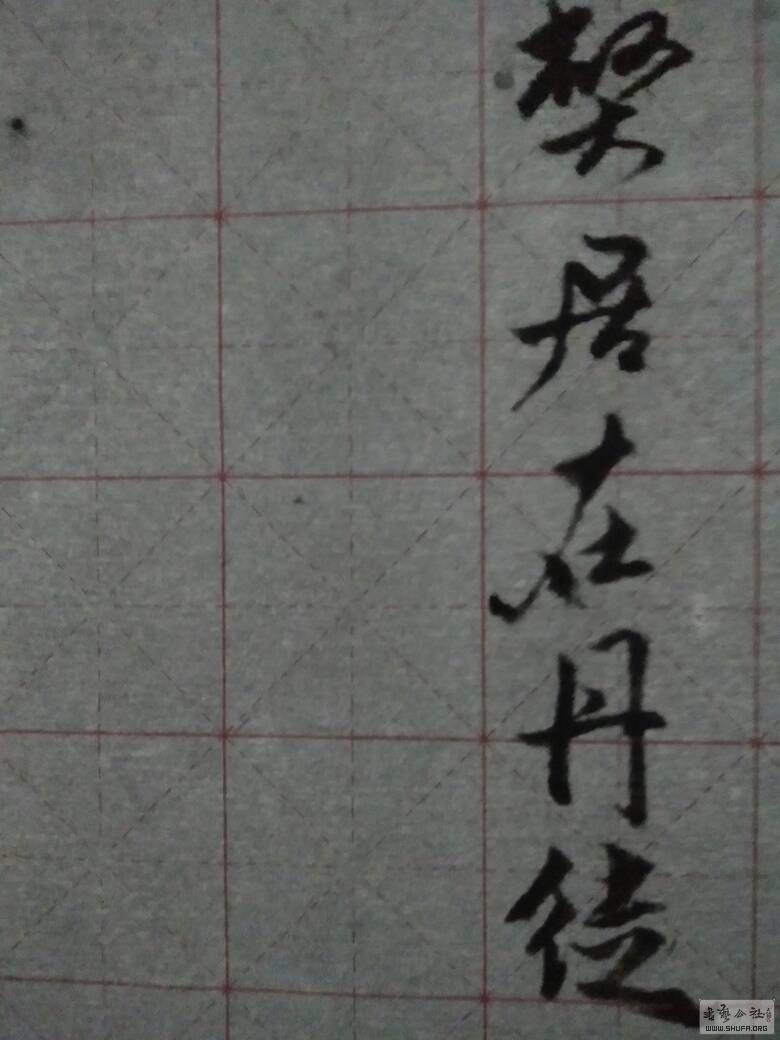 弊居在丹徒
書藝公社
WWW.SHUFA.ORG